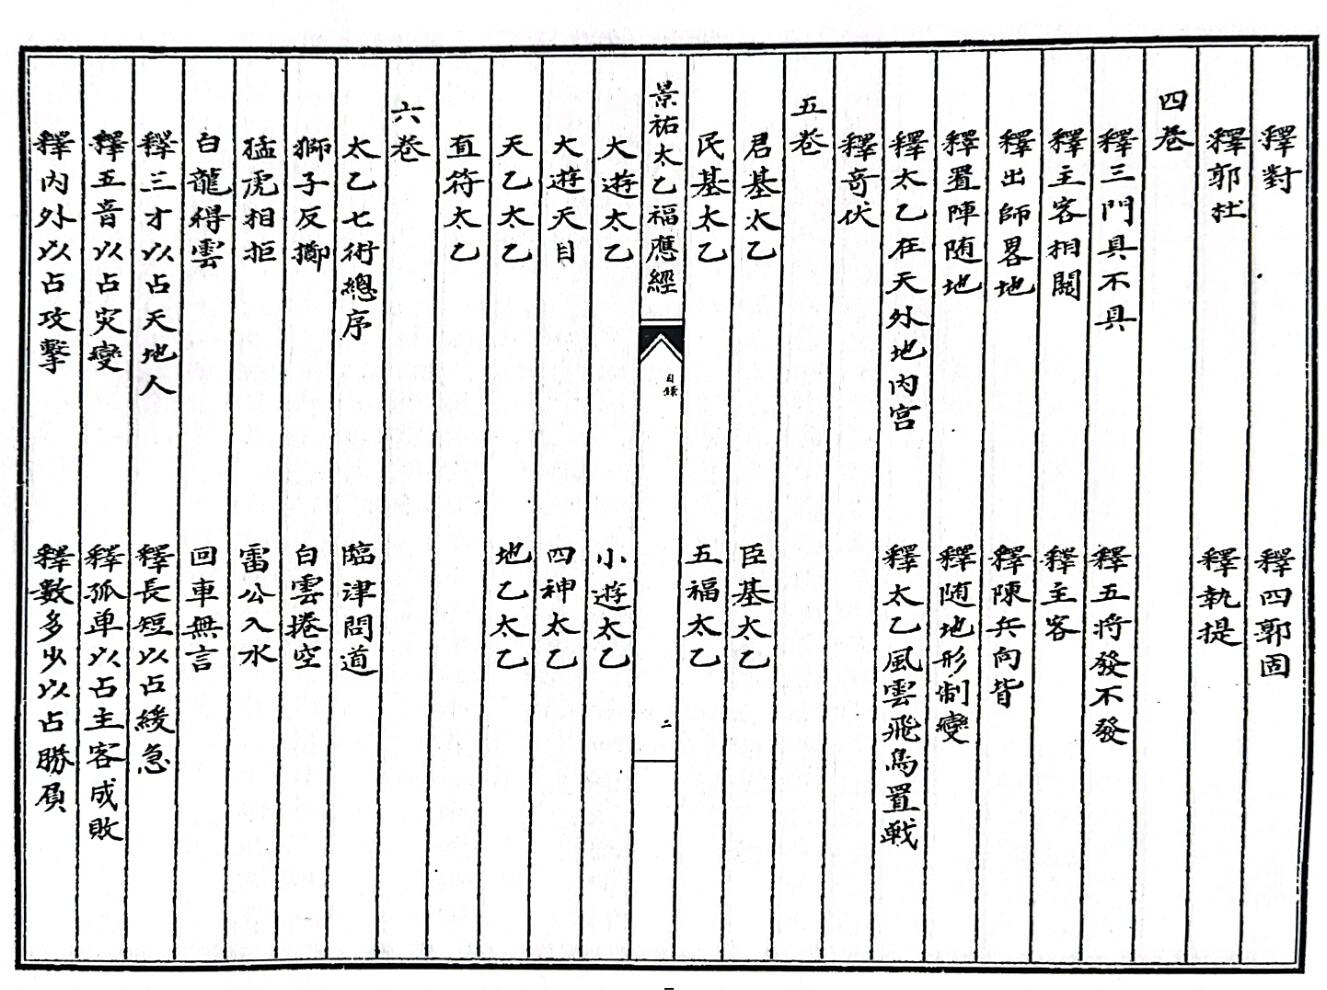 釋對　釋四郭固
釋郭杜　釋執提
四卷
釋三門具不具　釋五将發不發
釋主客相関　釋主客
釋出師畧地　釋陳兵向背
釋置陣随地　釋随地形制變
釋太乙在天外地内宫　釋太乙風雲飛鳥置戰
釋奇伏
五卷
君基太乙　臣基太乙
民基太乙　五福太乙
景祐太乙福應經　目錄　二
大遊太乙　小遊太乙
大遊天目　四神太乙
天乙太乙　地乙太乙
直符太乙
六卷
太乙七術總序　臨津問道
獅子反擲　白雲捲空
猛虎相拒　雷公入水
白龍得雲　回車無言
釋三才以占天地人　釋長短以占緩急
釋五音以占灾變　釋孤单以占主客成敗
釋内外以占攻擊　釋數多少以占勝負